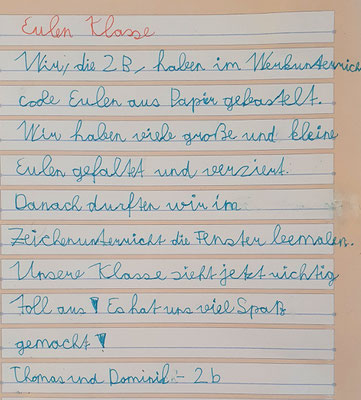 Eulen Klasse
Wir, die 2B, haben im Werkunterricht
coole Eulen aus Papier gebastelt.
Wir haben viele große und kleine
Eulen gefaltet und verziert.
Danach durften wir im
Zeichenunterricht die Fenster bemalen.
Unsere Klasse sieht jetzt richtig
toll aus! Es hat uns viel Spaß
gemacht!
Thomas und Dominik - 2b